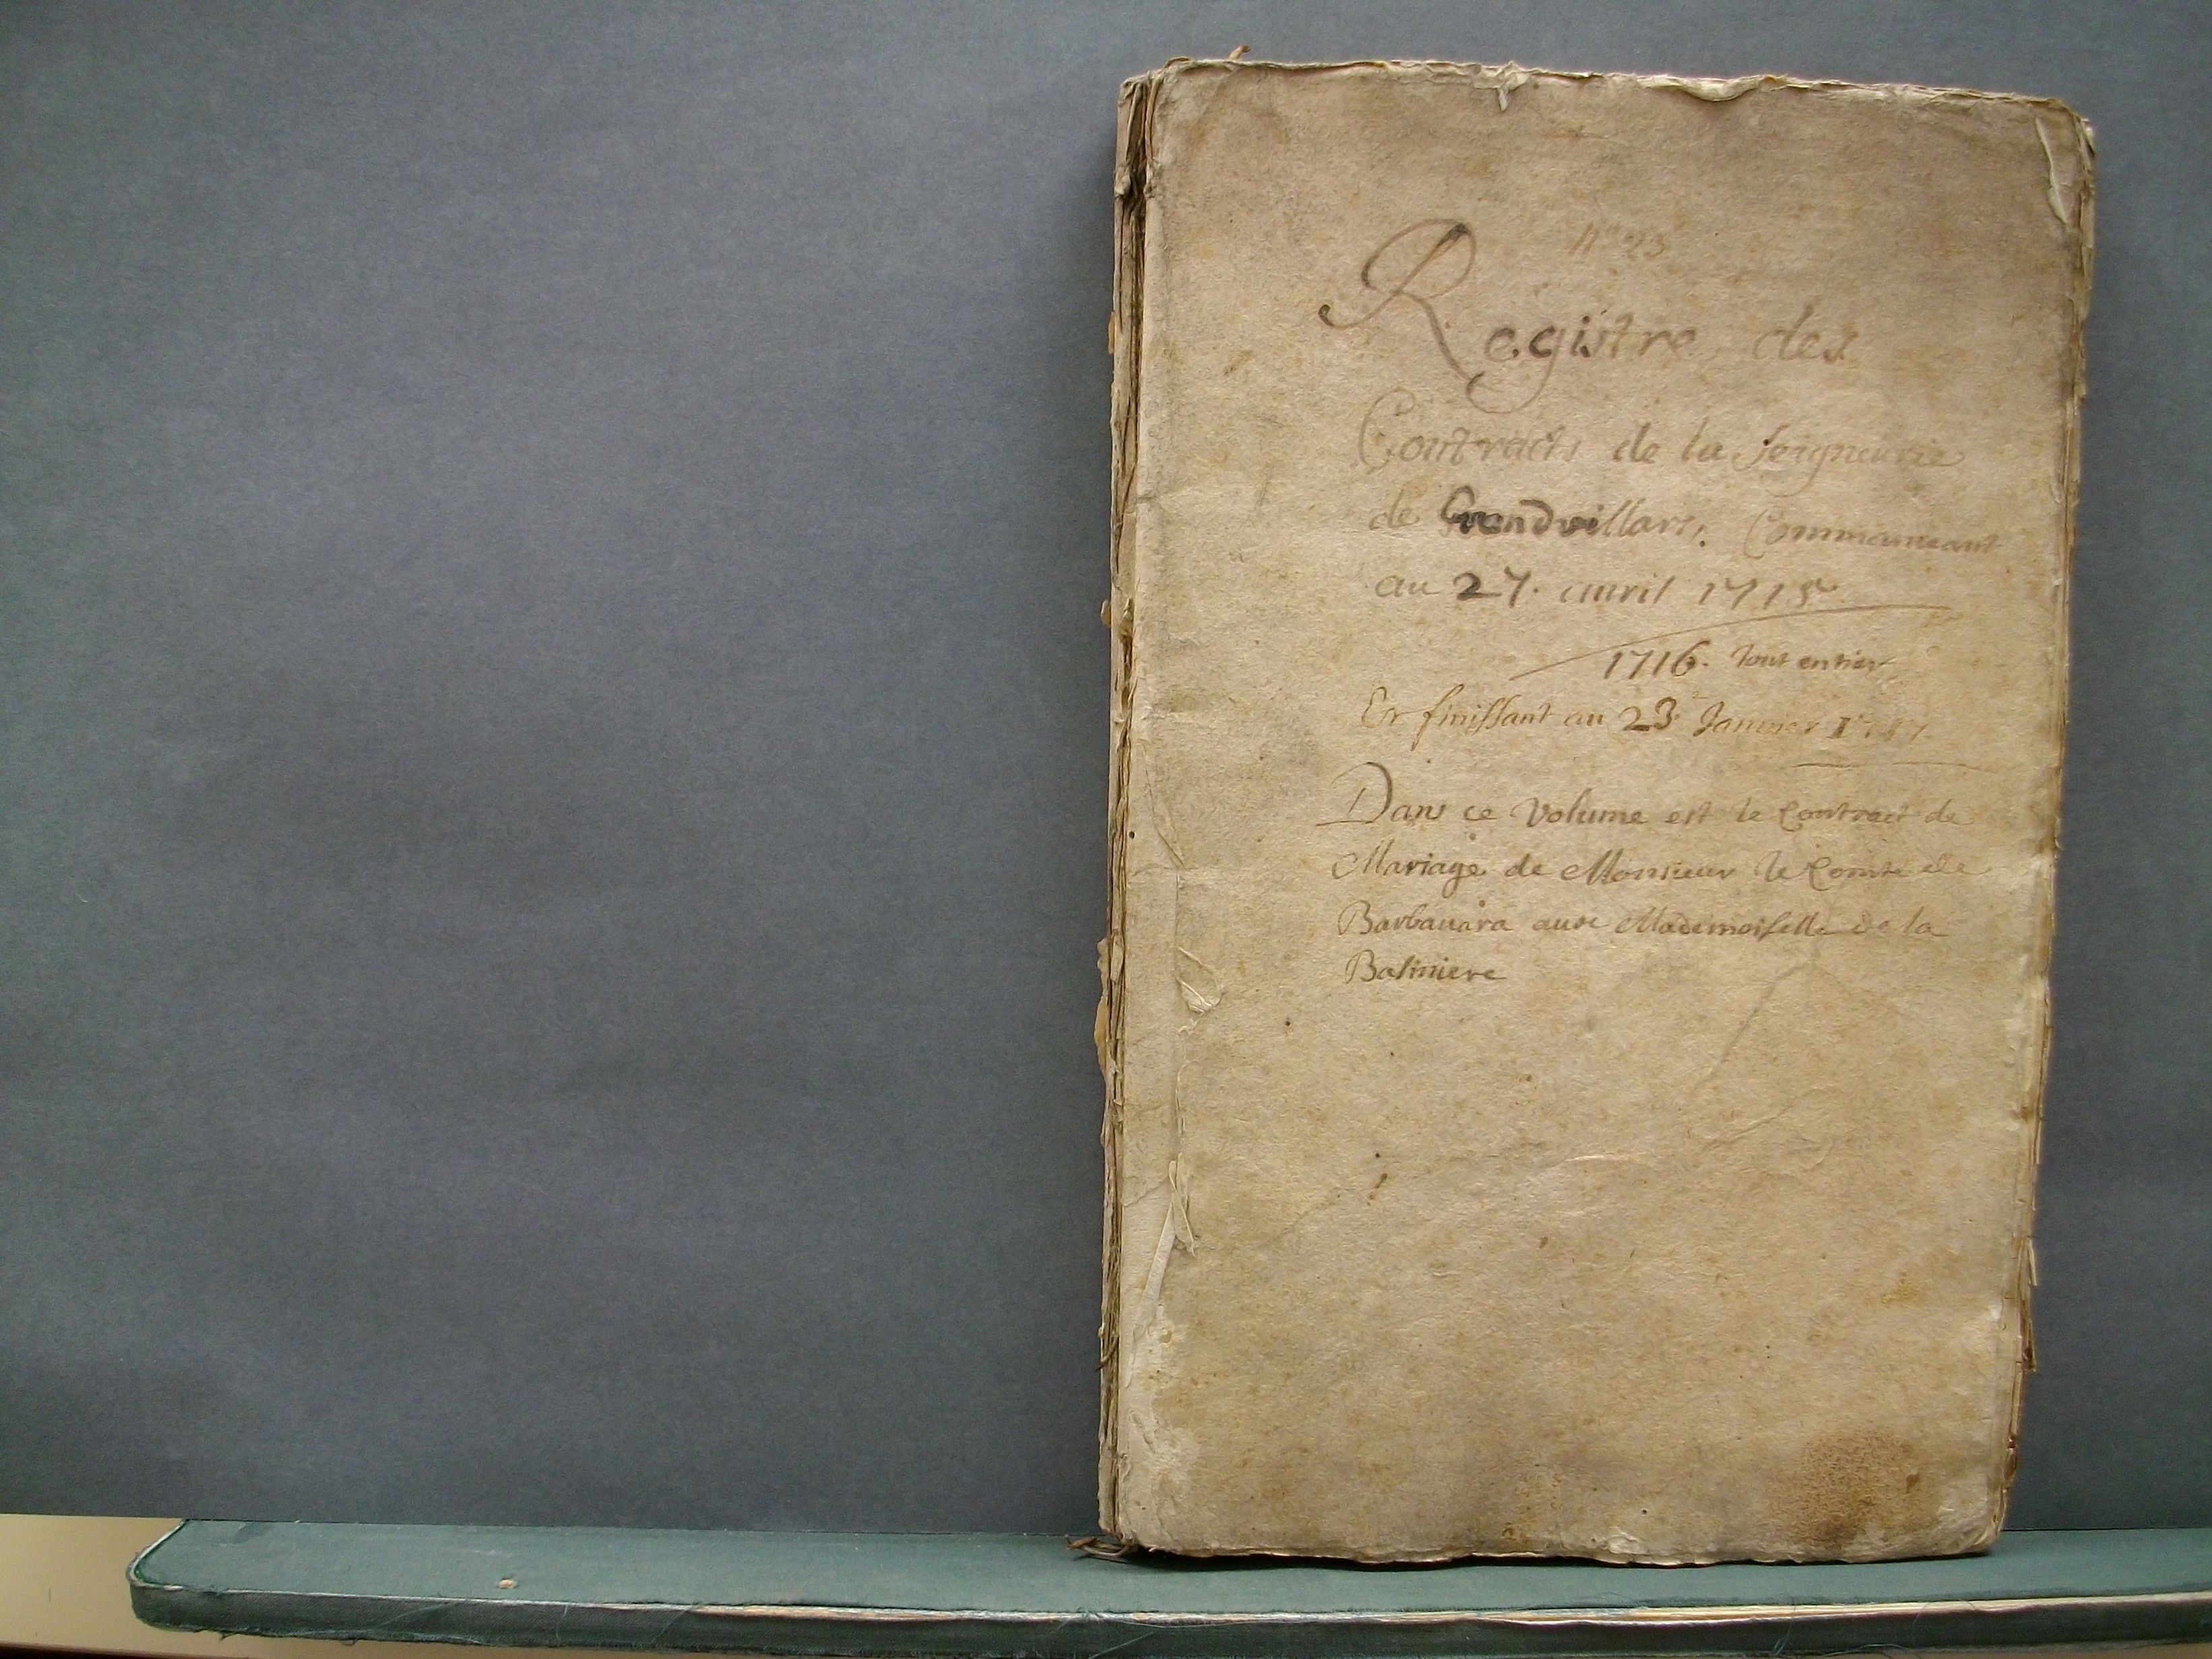 N° 23
Registre des
Contracts de la Seigneurie
de Grandvillars, Commenceant
au 27. auril 1715
1716. tout entier
Et finissant au 23 Januier 1717.
Dans ce Volume est le Contract de
Mariage de Monsieur le Comte de
Barbauara auec Mademoiselle de la
Basiniere